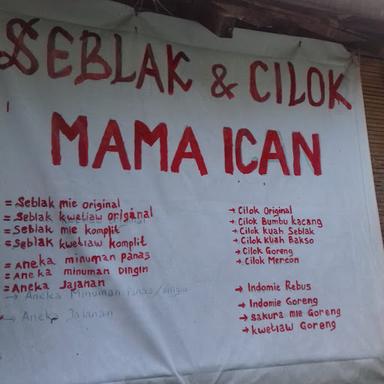 SEBLAK & CILOK
MAMA ICAN
= Seblak mie original
= Seblak kwetiaw original
= Seblak mie komplit
= Seblak kwetiaw komplit
= Aneka minuman panas
= Aneka minuman Dingin
= Aneka Jajanan
→ Aneka Minuman Panas/dingin
→ Aneka Jajanan
→ Cilok Original
→ Cilok Bumbu kacang
→ Cilok kuah Seblak
→ Cilok kuah Bakso
→ Cilok Goreng
→ Cilok Mercon
→ Indomie Rebus
→ Indomie Goreng
→ Sakura mie Goreng
→ kwetiaw Goreng